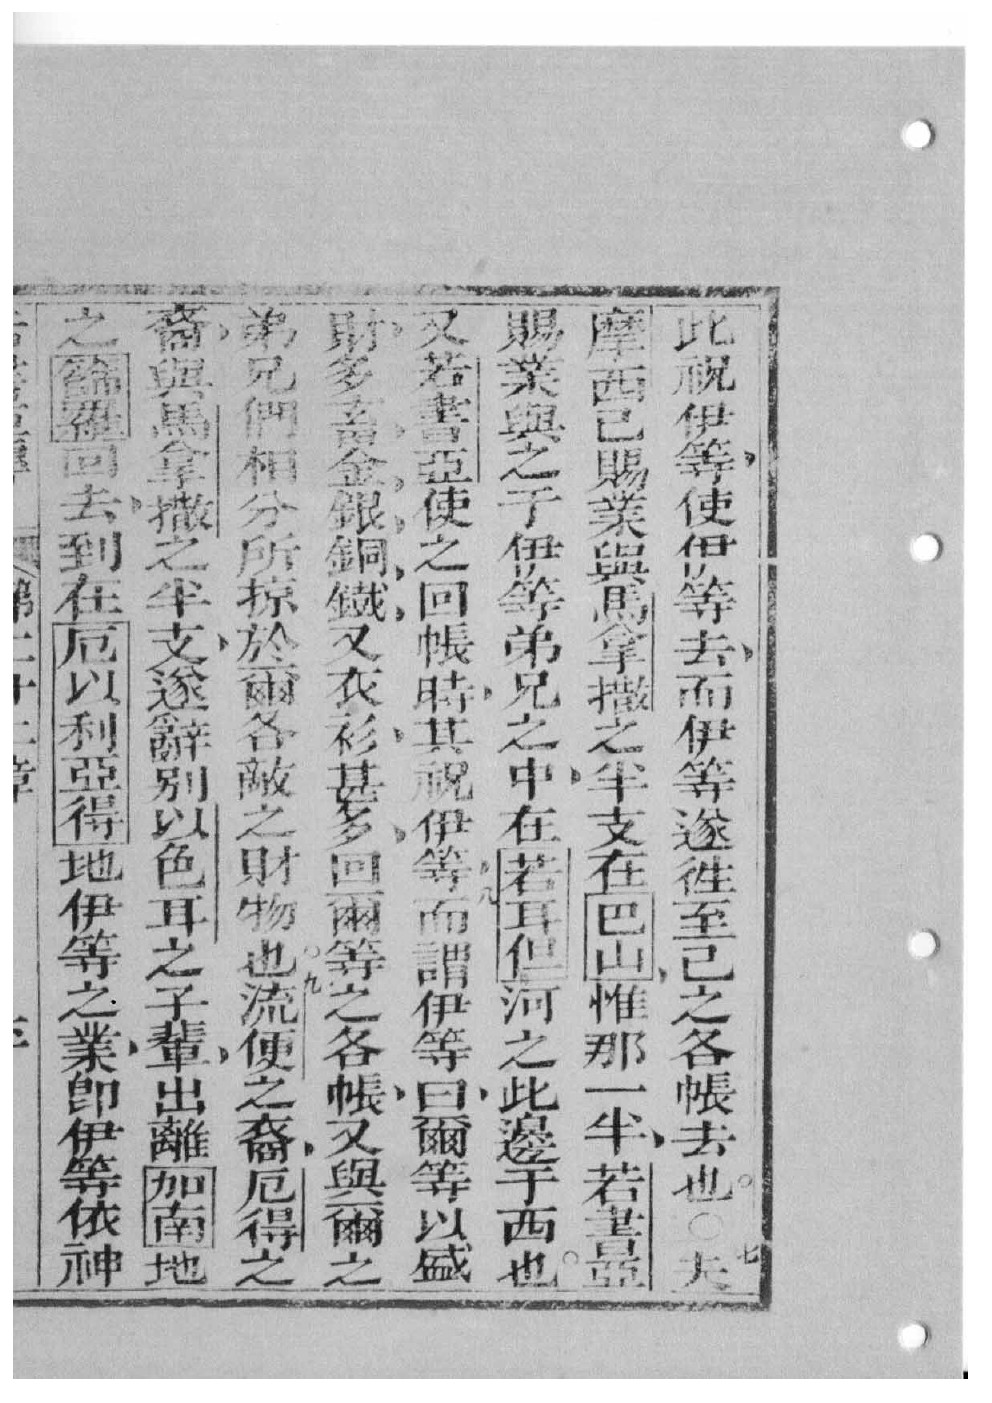 此祝伊等使伊等去而伊等遂徃至己之各帳去也。○七夫
摩西已賜業與馬拿撒之半支在巴山惟那一半若書亞
賜業與之于伊等弟兄之中在若耳但河之此邊于西也。
又若書亞使之回帳時其祝伊等八而謂伊等曰爾等以盛
財多畜金銀銅鐵又衣衫甚多回爾等之各帳又與爾之
弟兄們相分所掠於爾各敵之財物也。九流便之裔厄得之
裔與馬拿撒之半支遂辭別以色耳之子輩出離加南地
之回去到在厄以利亞得地伊等之業即伊等依神
第二十二章